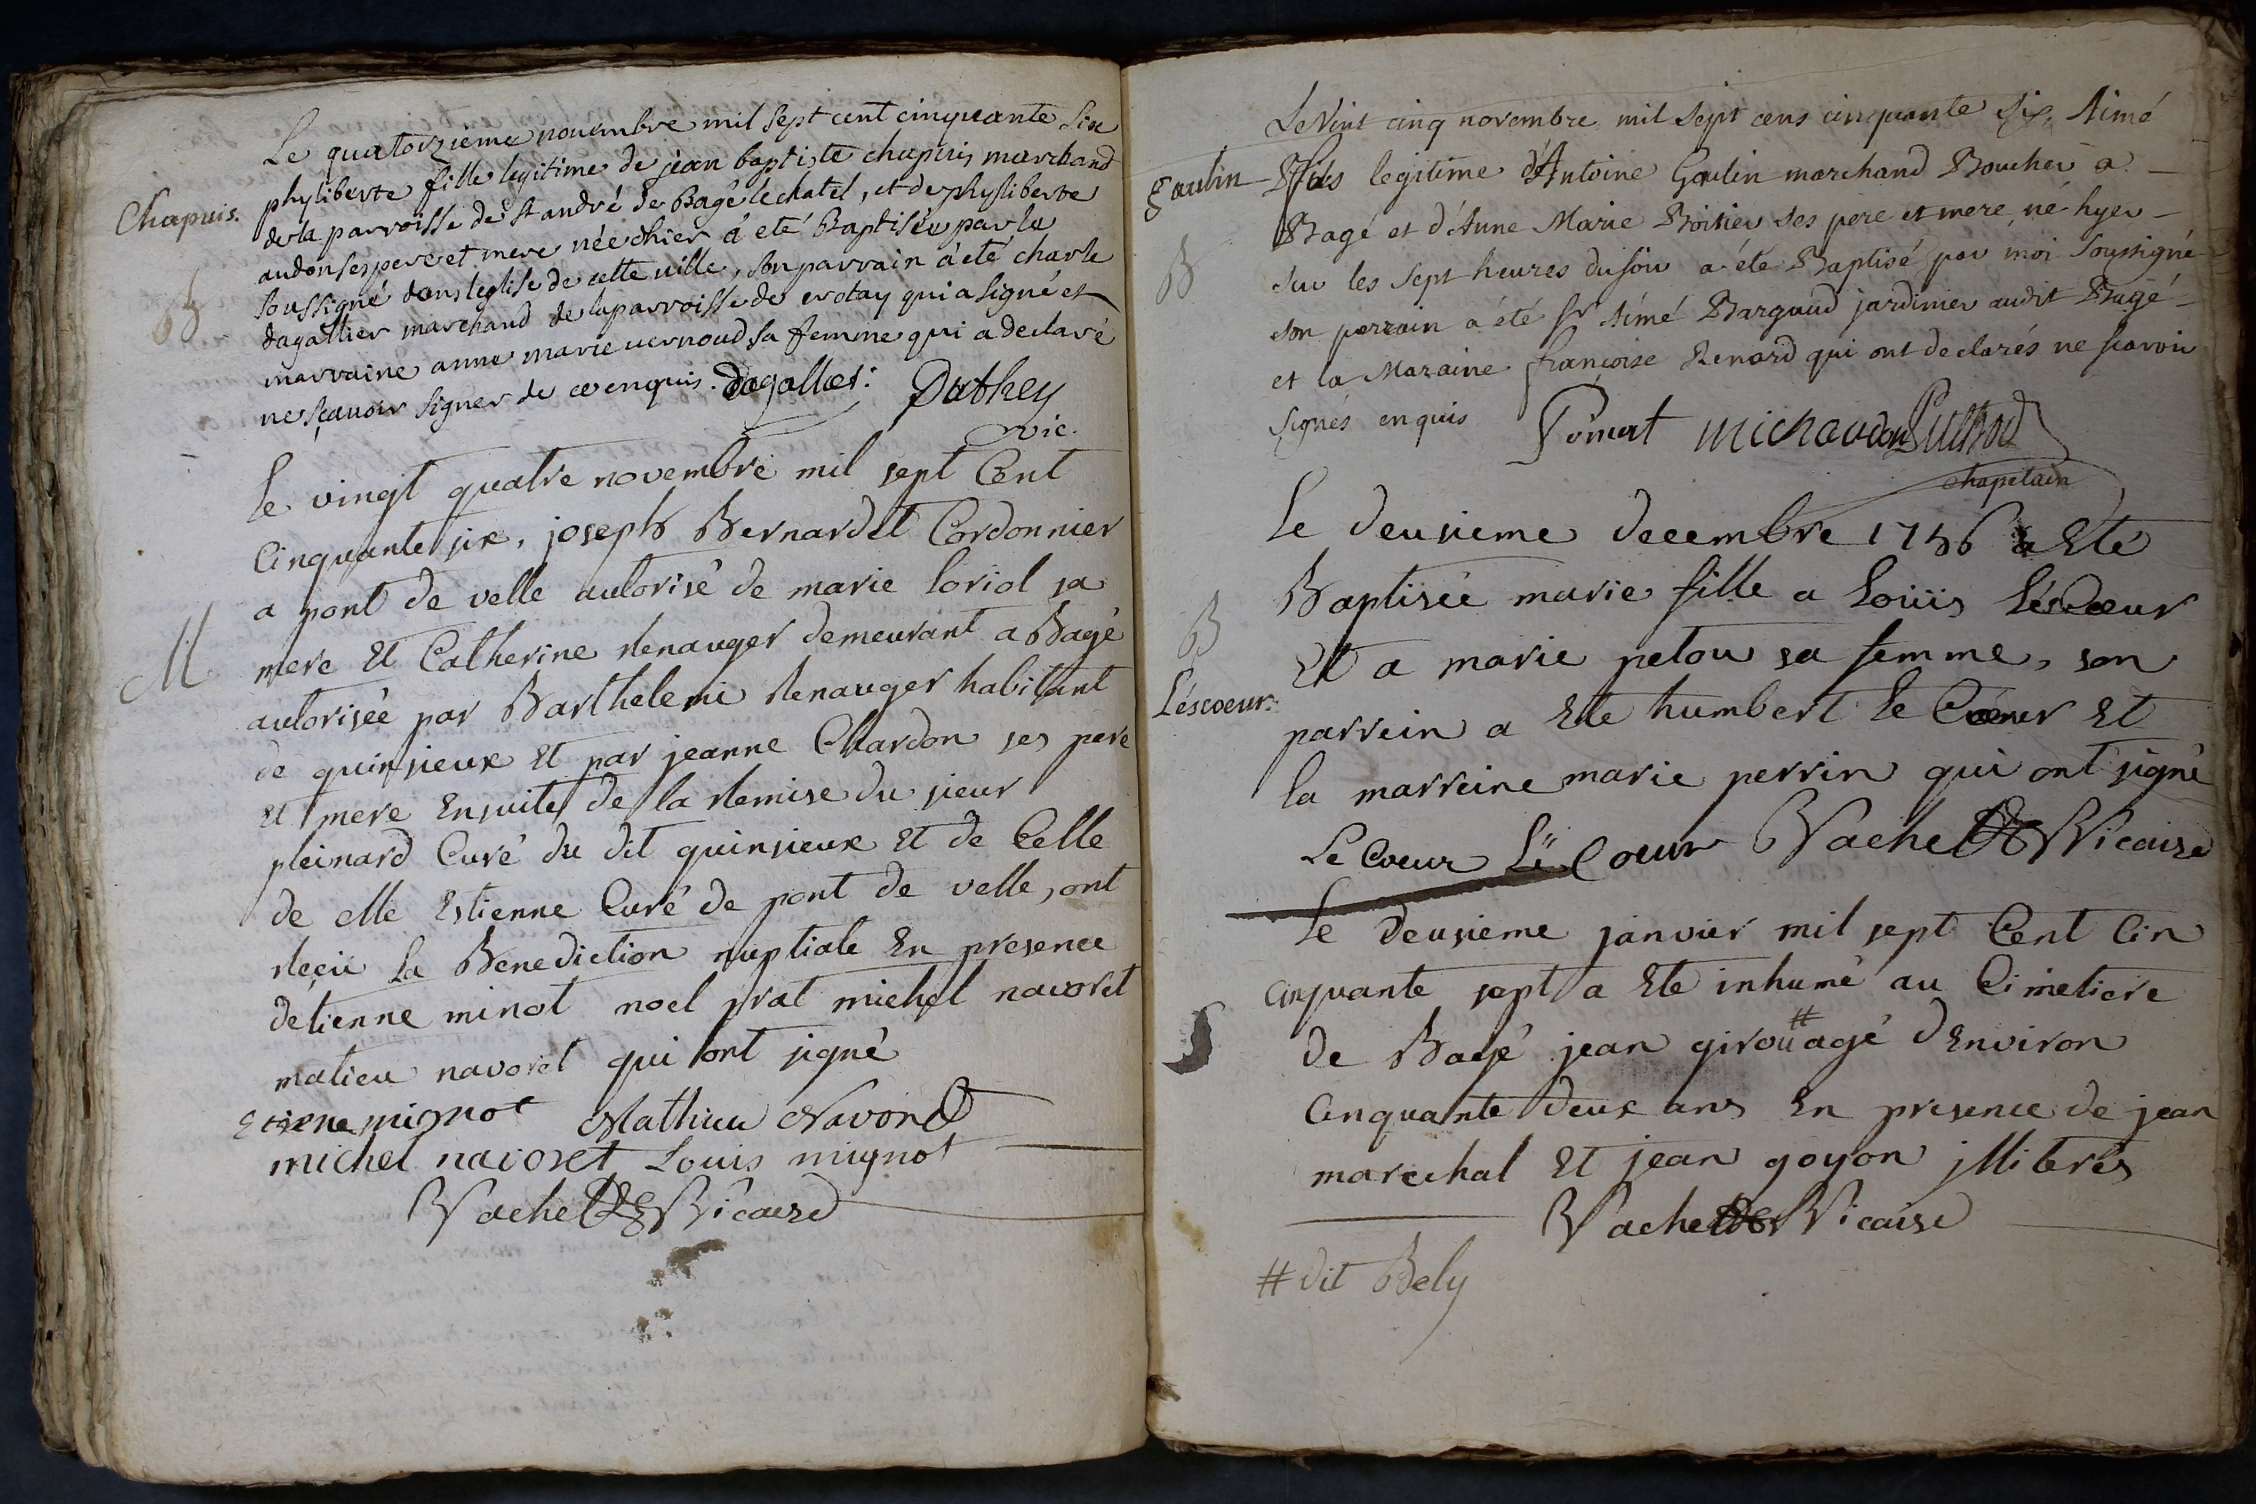 Le quatorzieme novembre mil sept cent cinquante six
phyliberte fille legitime de jean baptiste chapuis marchand
Chapuis.
de la parroisse de St andré de Bagé le chatel, et de phyliberte
audon ses pere et mere née hier a été Baptisée par le
B
soussigné dans leglise de cette ville, son parrain a été charle
dagallier marchand de la parroisse de crotay qui a signé et
marraine anne marie vernoud sa femme qui a declaré
ne sçavoir signer de ce enquis. Dagallier: Duthey
vic.
le vingt quatre novembre mil sept Cent
Cinquante six, joseph Bernardet Cordonnier
a pont de velle autorisé de marie loriol sa
M
mere Et Catherine renauger demeurant a Bagé
autorisée par Barthelemi renauger habitant
de quinsieux Et par jeanne Chardon ses pere
Et mere Ensuite de la remise du sieur
pleinard Curé du dit quinsieux Et de Celle
de elle Estienne Curé de pont de velle, ont
reçu la Benediction nuptiale En presence
detienne minot noel prat michel navoret
matieu navoret qui ont signé
Etiene mignot Mathieu Navoret
michel navoret Louis mignot
Vachet Vicaire
Le Vint cinq novembre mil sept cens cinquante six, Aimé
gaulin
fils legitime d'Antoine Gaulin marchand Boucher a
Bagé et d'Anne Marie Boitier ses pere et mere né hyer
B
sur les sept heures du soir a été Baptisé par moi soussigné
son parrain a été sr Aimé Bargaud jardinier audit Bagé
et la Maraine françoise Renard qui ont declarés ne scavoir
signés enquis michaudon Puthod
chapelain
le deusieme decembre 1756 a Eté
Baptisée marie fille a Loüis LesCoeur
B
Et a marie petou sa femme, son
Léscoeur.
parrein a Ete humbert le Coeur Et
la marreine marie perrin qui ont signé
Le Coeur Le Coeur Vachet Vicaire
le deusieme janvier mil sept Cent Cin
Cinquante sept a Ete inhumé au Cimetiere
S
de Bagé jean girou # agé d'Environ
Cinquante deux ans En presence de jean
marechal Et jean goyon illiterés
Vachet Vicaire
# dit Bely